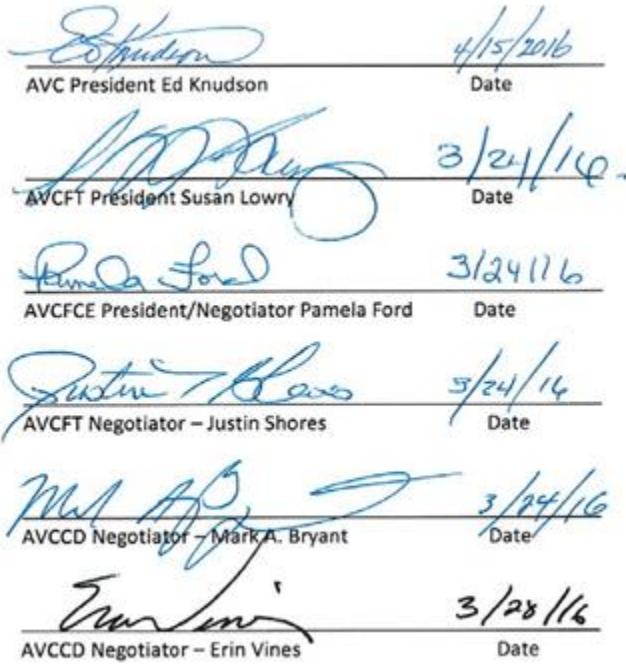 Ed Knudson 4/15/2016
AVC President Ed Knudson Date
3/24/16
AVCFT President Susan Lowry Date
Pamela Ford 3/24/16
AVCFCE President/Negotiator Pamela Ford Date
Justin 3/24/16
AVCFT Negotiator – Justin Shores Date
3/24/16
AVCCD Negotiator – Mark A. Bryant Date
Erin Vines 3/28/16
AVCCD Negotiator – Erin Vines Date